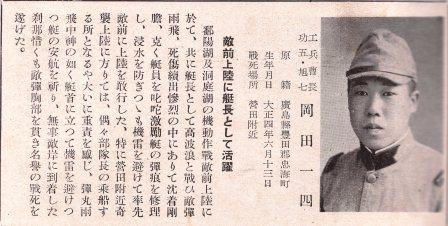 工兵曹長
功五・旭七
岡田一四
原籍 廣島縣豐田郡忠海町
生年月日 大正四年六月十三日
戰死場所 營田附近
敵前上陸に艇長として活躍
鄱陽湖及洞庭湖の機動作戰敵前上陸に
於て、共に艇長として高波浪と戰ひ敵彈
雨飛、死傷續出慘烈の中にありて沈着剛
膽、克く艇員を叱咤激勵艇の彈痕を修理
し、浸水を防ぎつゝも機雷を避けて率先
敵前に上陸を敢行した。特に營田附近奇
襲上陸に方りては、偶々部隊長の乘船す
る所となるや大いに重責を感じ、彈丸雨
飛中神の如く艇首に立つて機雷を避けつ
艇の安航を祈り、無事敵岸に到着した
刹那惜くも敵彈胸部を貫き名譽の戰死を
遂げた。